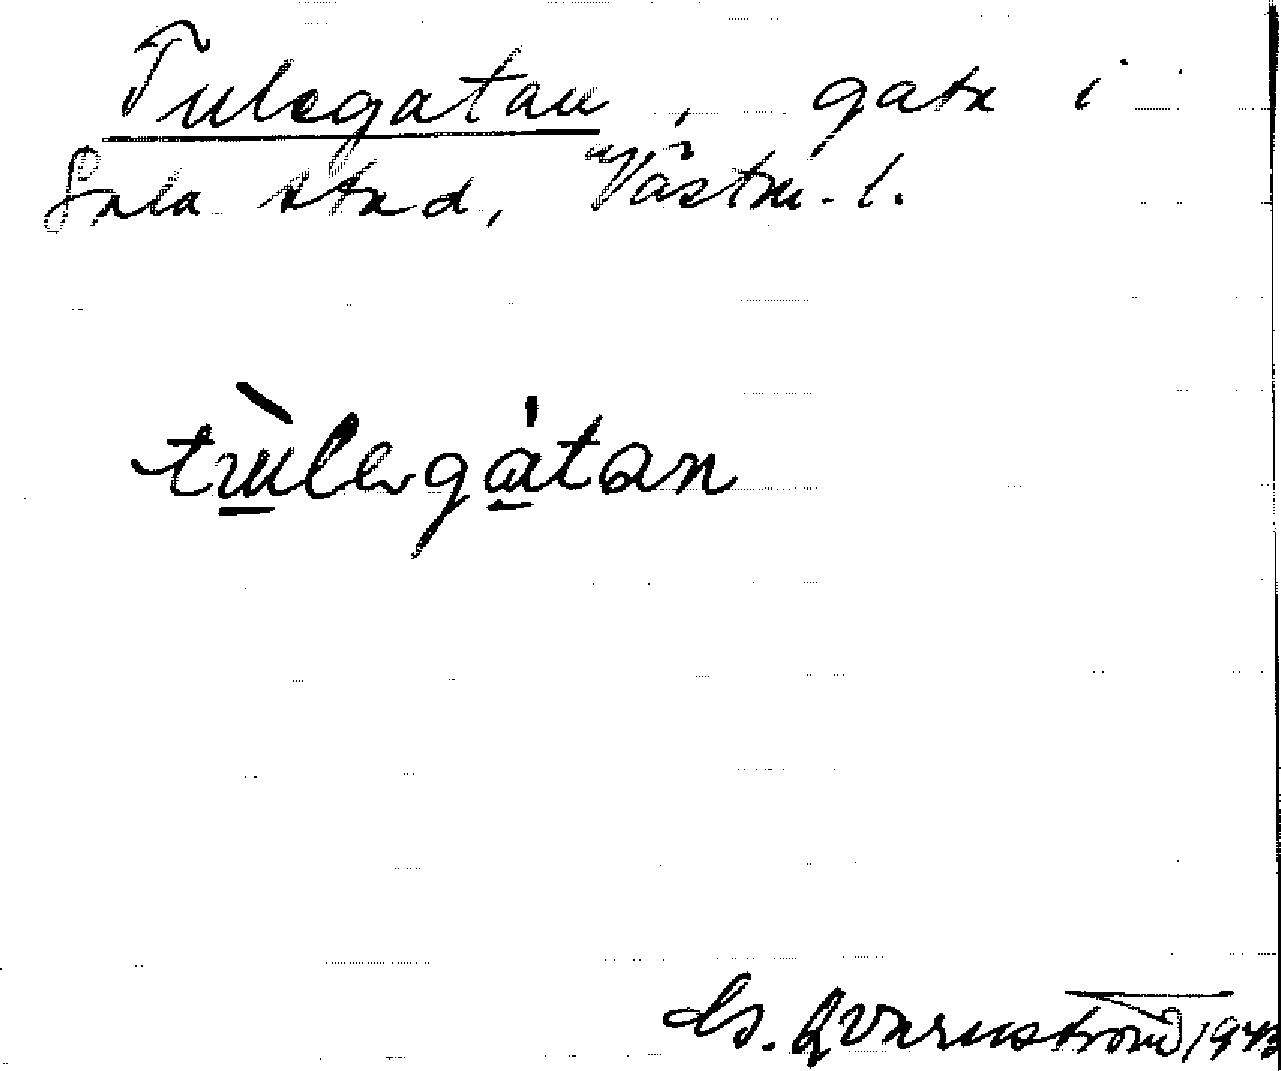 Tulegatan, gata i
Sala stad, Västm. l.
tùlegátan
Qvarnström 1943